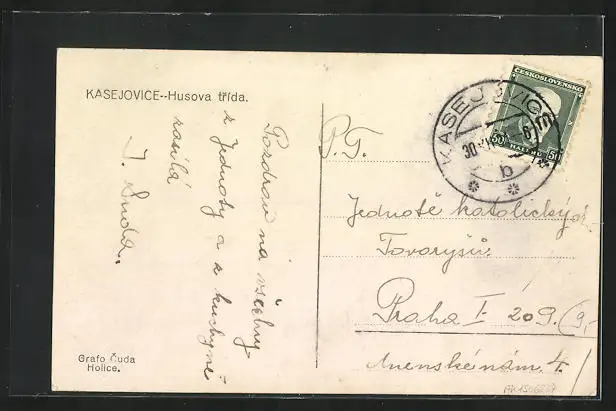 KASEJOVICE--Husova třída.
Pozdrav na všechny
z Jednoty a z kuchyně
zasílá
J. Duda.
Grafo Čuda
Holice.
ČESKOSLOVENSKO
50 HALÉŘŮ 50
KASEJOVICE
30
b
P. T.
Jednotě katolických
Tovaryšů.
Praha I. 209. (9,-
Anenské nám. 4.